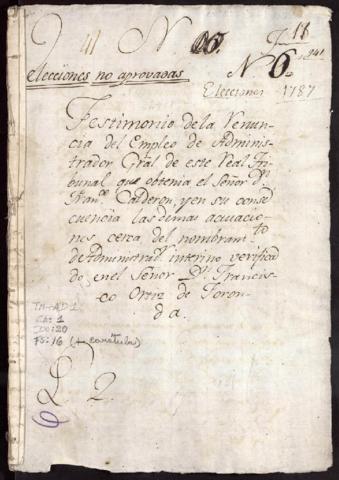 41 N. 6. 18
Elecciones no aprovadas N. 6.
Elecciones 1787
Testimonio de la Renun-
cia del Empleo de Adminis-
trador Gral de este Real Tri-
bunal que obtenia el Señor Dn.
Franco. Calderon, y en su conse
cuencia las demas actuacio-
nes cerca del nombramto
de Administrar. interino verifica
do en el Señor Dn. Francis-
co Ortiz de Foron-
da.
TM-AD 1
CA: 1
DO: 20
FS: 16 (+ caratula)
L 2
6